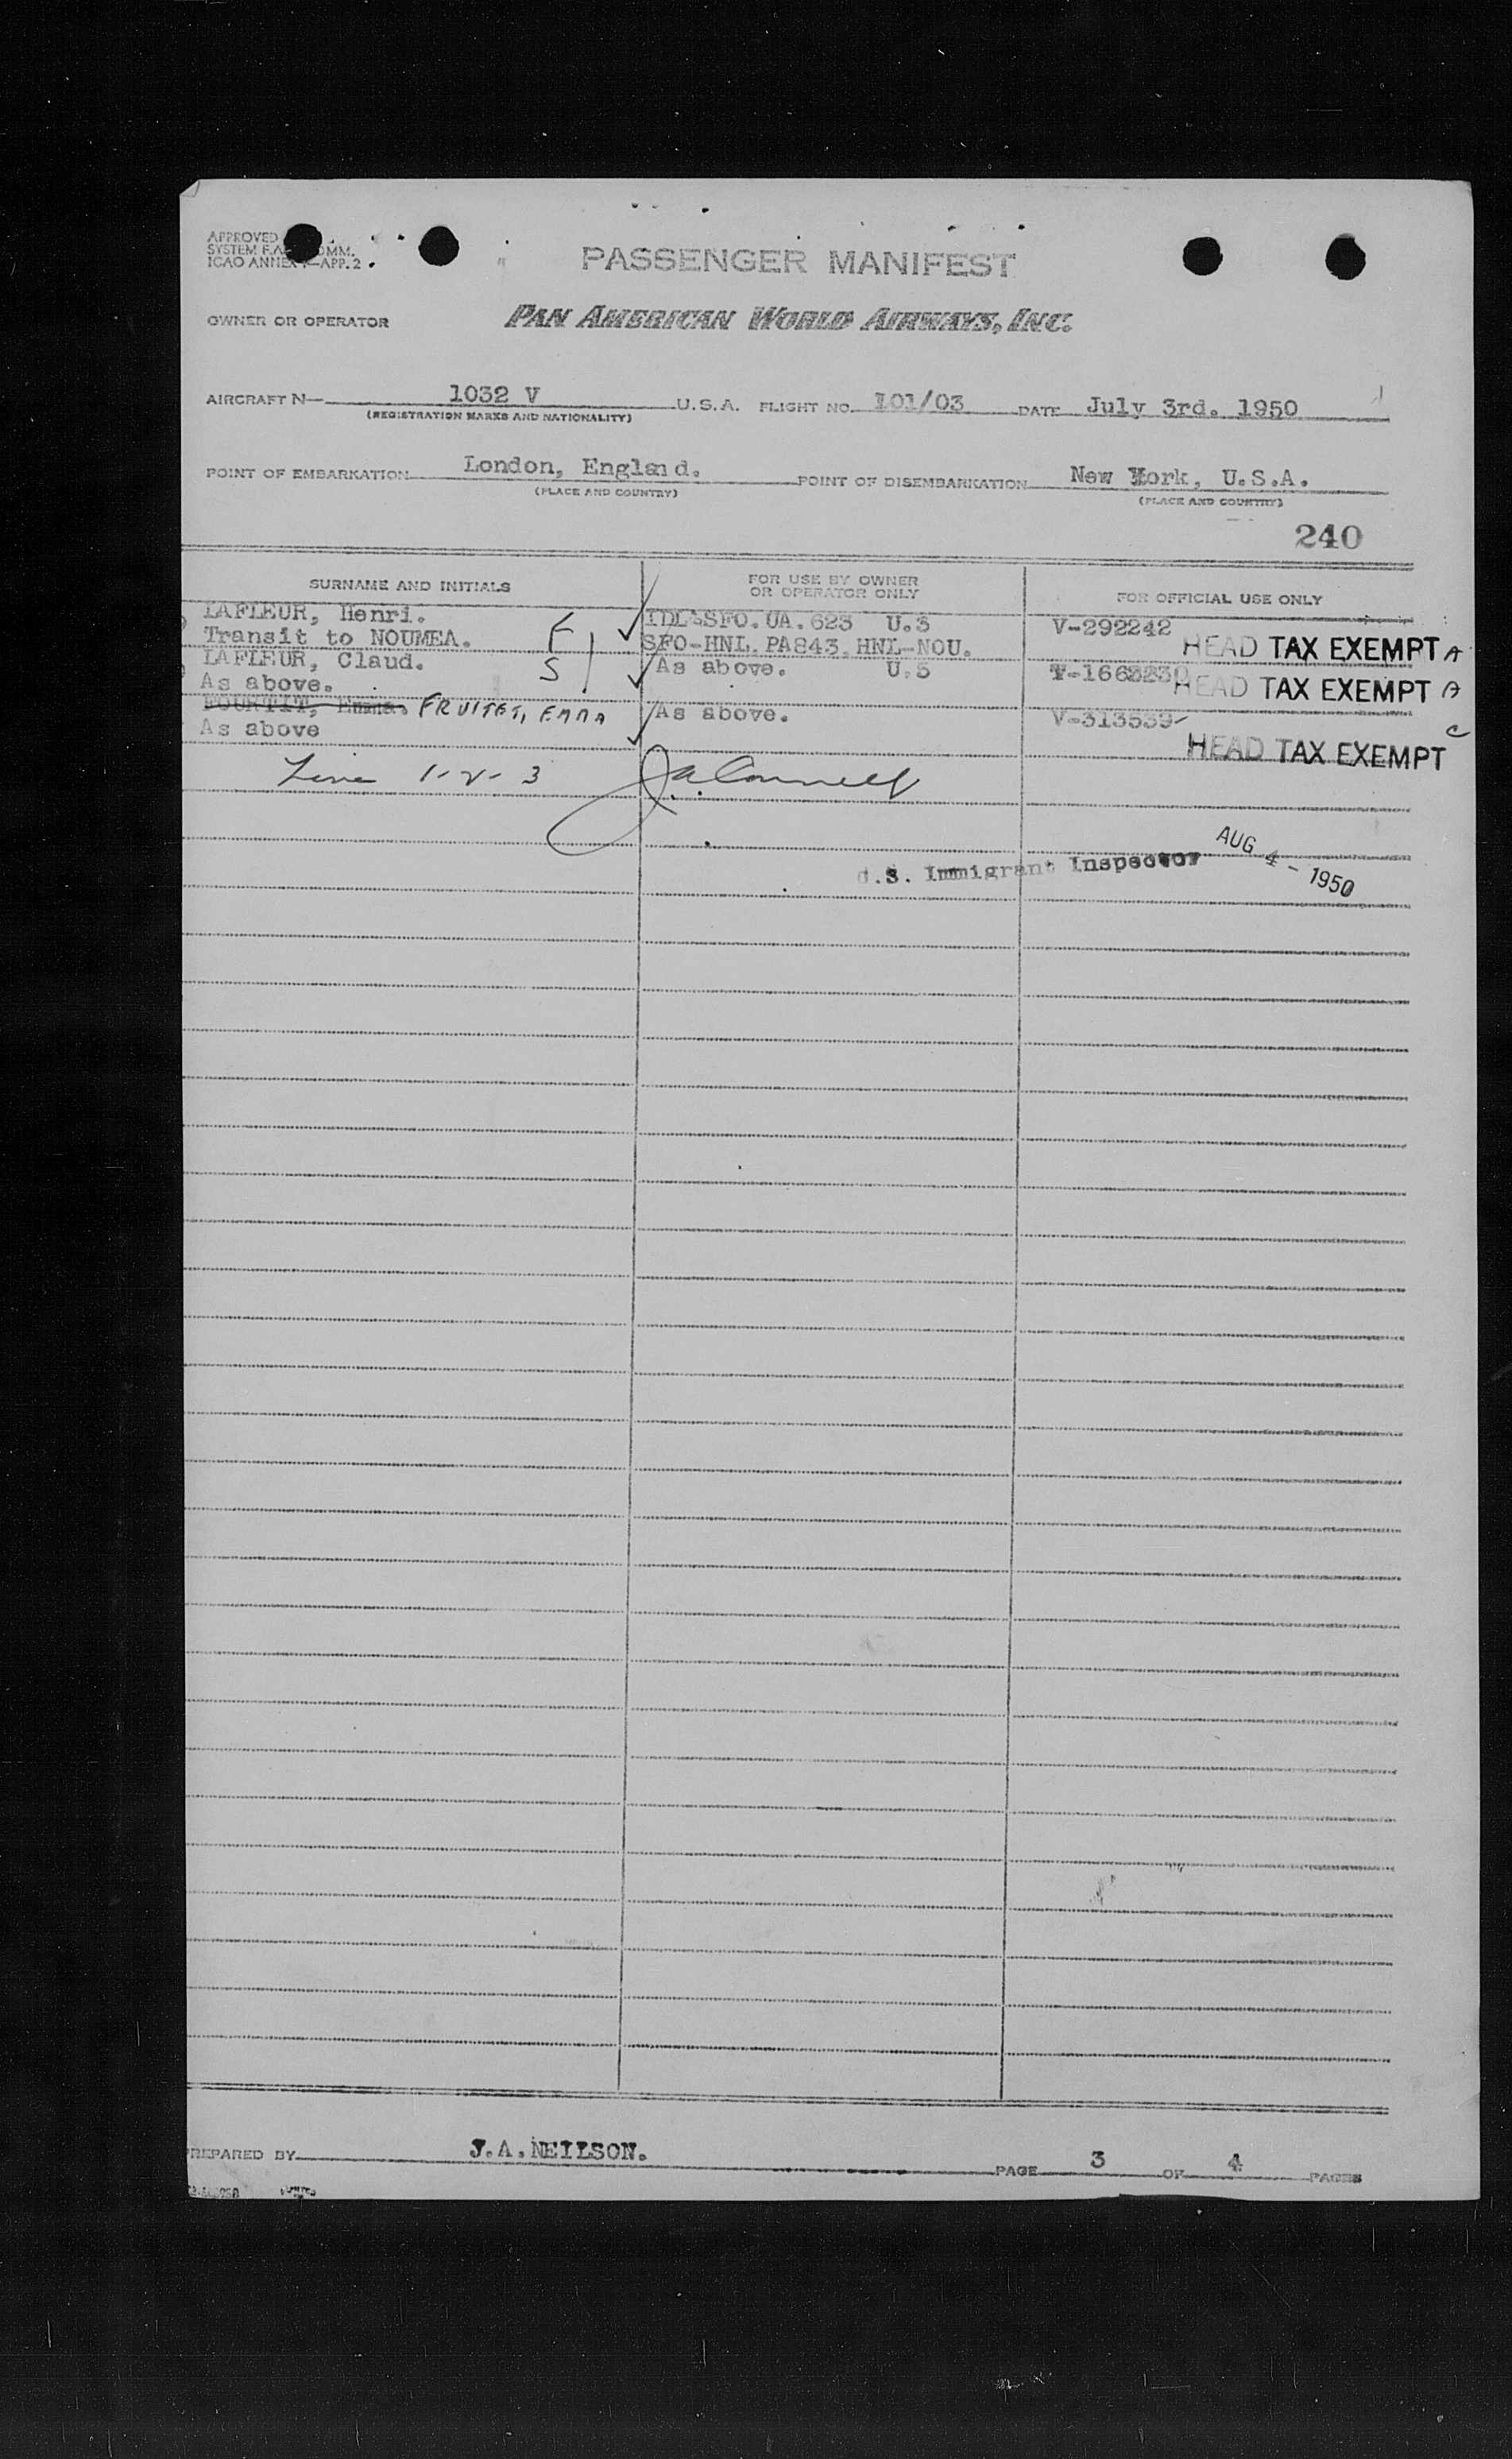 APPROVED
SYSTEM F.A. COMM.
ICAO ANNEX —APP. 2
PASSENGER MANIFEST
OWNER OR OPERATOR PAN AMERICAN WORLD AIRWAYS, INC.
AIRCRAFT N— 1032 V U.S.A. FLIGHT NO. 101/03 DATE July 3rd. 1950
(REGISTRATION MARKS AND NATIONALITY)
POINT OF EMBARKATION London, England. POINT OF DISEMBARKATION New York, U.S.A.
(PLACE AND COUNTRY) (PLACE AND COUNTRY)
240
SURNAME AND INITIALS FOR USE BY OWNER OR OPERATOR ONLY FOR OFFICIAL USE ONLY
LAFLEUR, Henri. IDL-SFO.UA.623 U.3 V-292242
Transit to NOUMEA. F SFO-HNL.PA843.HNL-NOU. HEAD TAX EXEMPT A
LAFLEUR, Claud. S As above. U.3
As above. HEAD TAX EXEMPT A
FOURTIT, Emma. FRUITET, EMMA As above. V-313539
As above HEAD TAX EXEMPT C
Line 1-2-3
U.S. Immigrant Inspector AUG 4 - 1950
PREPARED BY J.A.NEILSON. PAGE 3 OF 4 PAGES